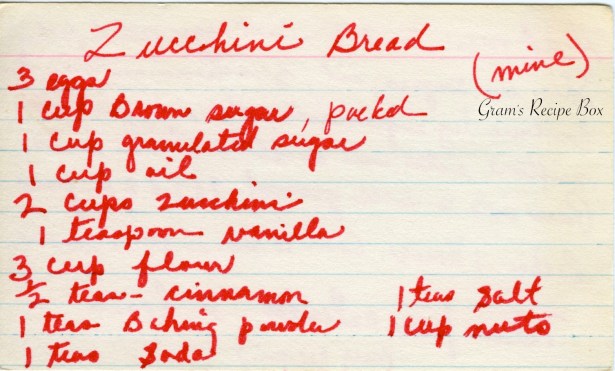 Zucchini Bread
(mine)
Gram's Recipe Box
3 eggs
1 cup Brown sugar, packed
1 cup granulated sugar
1 cup oil
2 cups zucchini
1 teaspoon vanilla
3 cup flour
1/2 teas - cinnamon
1 teas salt
1 teas Baking powder
1 cup nuts
1 teas Soda